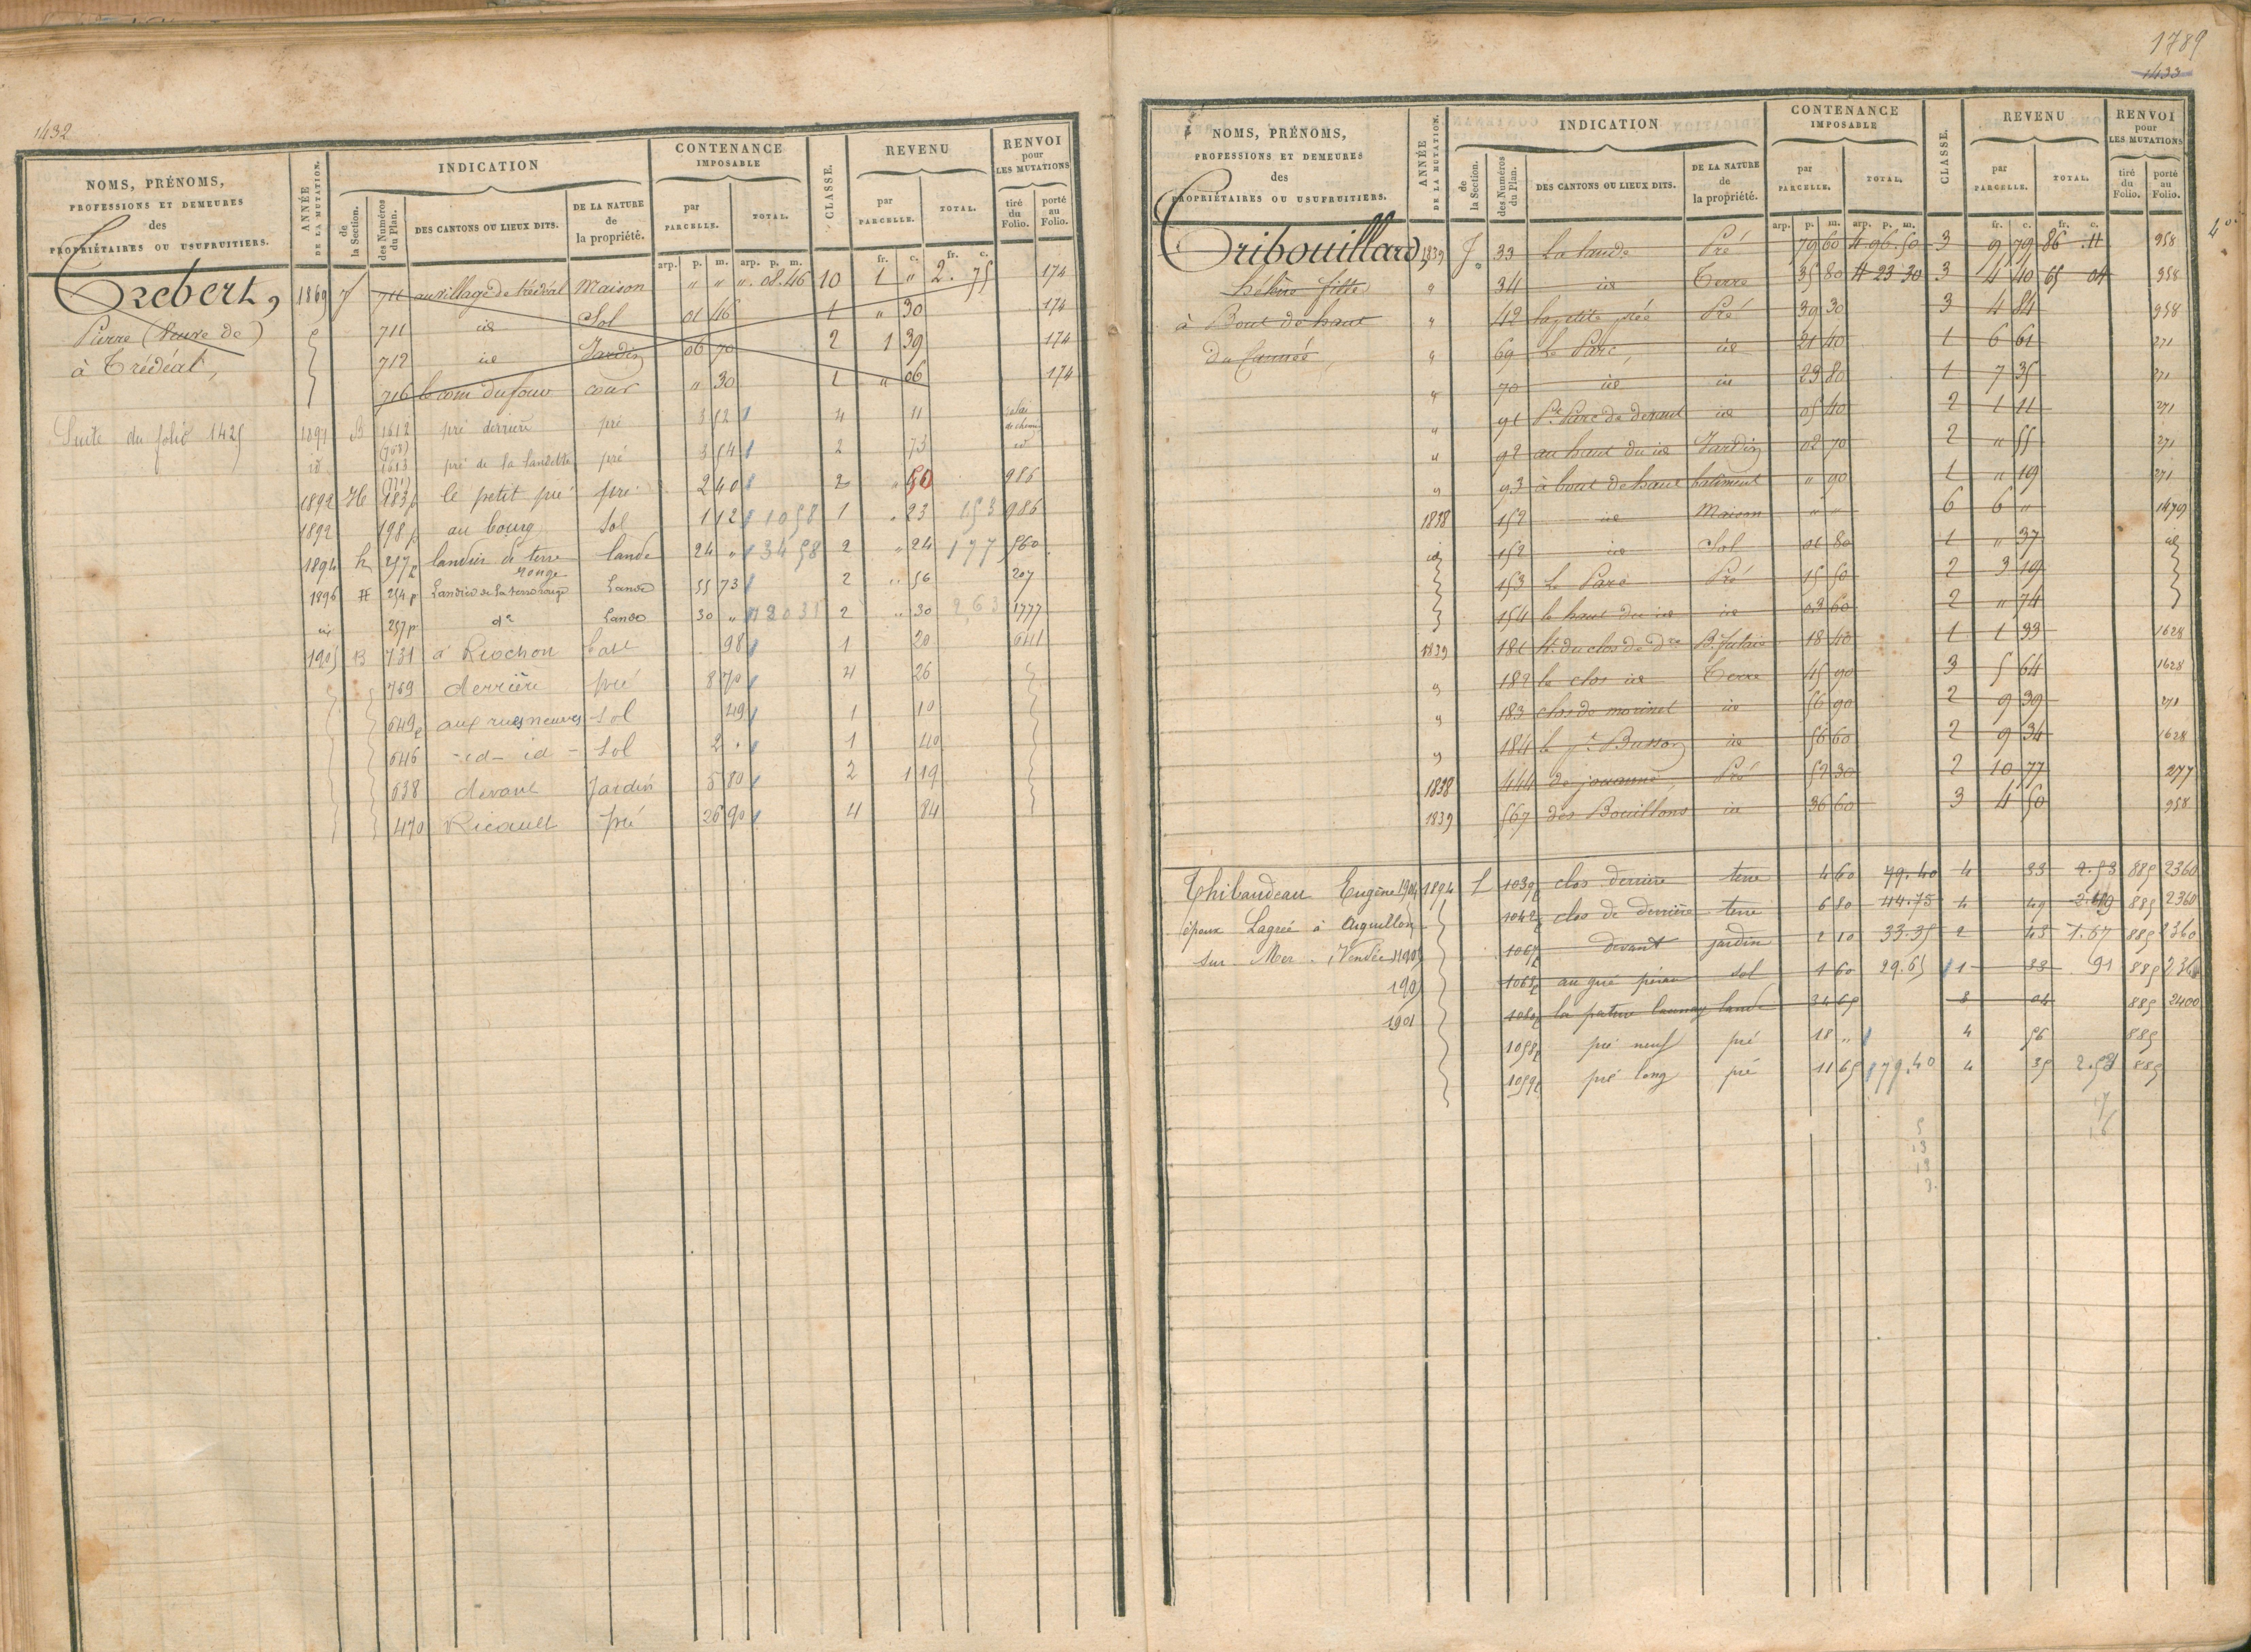 1432
NOMS, PRÉNOMS,
PROFESSIONS ET DEMEURES
des
PROPRIÉTAIRES OU USUFRUITIERS.
ANNÉE
DE LA MUTATION.
INDICATION
de la Section.
des Numéros du Plan.
DES CANTONS OU LIEUX DITS.
DE LA NATURE
de
la propriété.
CONTENANCE
IMPOSABLE
par
PARCELLE.
TOTAL.
CLASSE.
REVENU
par
PARCELLE.
TOTAL.
RENVOI
pour
LES MUTATIONS
tiré du Folio.
porté au Folio.
arp. p. m. arp. p. m. fr. c. fr. c.
Trebert,
Pierre (Veuve de)
à Trédéal,
Suite du folio 1425
1869 J 711 au village de trédéal Maison " " " ". 08. 46 10 1 " 2. 75 174
711 id Sol 01 46 1 " 30 174
712 id Jardin 06 70 2 1 39 174
716 le coin du four cour " 30 1 " 06 174
1891 B 1612 pré derrière pré 3 52 4 11
id 1613 pré de la landette pré 3 54 2 73 id
1892 H 183p le petit pré pré 2 40 2 " 50 986
1892 198p au bourg Sol 1 12 1058 1 " 23 153 986
1894 h 257p landier de terre rouge lande 24 " 3458 2 " 24 177 560
1896 H 254p Landier de la terre rouge Lande 55 73 2 " 56 207
id 257p do Lande 30 " 12031 2 " 30 263 1777
1905 B 731 à Riochon 98 1 20 641
769 derrière pré 8 70 4 26
649p aux rues neuves Sol 49 1 10
646 - id - id - Sol 2 . 1 40
638 devant Jardin 5 80 2 1 19
470 Ricoult pré 26 90 4 84
1789
1433
NOMS, PRÉNOMS,
PROFESSIONS ET DEMEURES
des
PROPRIÉTAIRES OU USUFRUITIERS.
ANNÉE
DE LA MUTATION.
INDICATION
de la Section.
des Numéros du Plan.
DES CANTONS OU LIEUX DITS.
DE LA NATURE
de
la propriété.
CONTENANCE
IMPOSABLE
par
PARCELLE.
TOTAL.
CLASSE.
REVENU
par
PARCELLE.
TOTAL.
RENVOI
pour
LES MUTATIONS
tiré du Folio.
porté au Folio.
arp. p. m. arp. p. m. fr. c. fr. c.
Tribouillard,
fille
à Bout de haut
1839 J 33 La lande Pré 79 60 4. 96. 50 3 9 79 86 .11 958
" 34 id Terre 35 80 4 23 30 3 4 40 65 04 958
" 42 la petite prée Pré 39 30 3 4 84 958
" 69 Le Parc, id 21 40 1 6 61 271
" 70 id id 23 80 1 7 35 271
" 91 Pt. Parc de devant id 05 40 2 1 11 271
" 92 au haut du id Jardin 02 70 2 " 55 271
" 93 à bout de haut batiment " 90 1 " 19 271
1838 152 id Maison " " 6 6 " 1479
id 152 id Sol 01 80 1 " 37 id
153 Le Parc Pré 15 50 2 3 19
154 le haut du id id 03 60 2 " 74
1839 181 18 40 1 1 33 1628
" 182 le clos id Terre 45 90 3 5 64 1628
" 183 clos de morinet id 56 90 2 9 39 271
" 184 le pt. Busson id 56 60 2 9 34 1628
1838 444 de jouanne Pré 52 30 2 10 77 277
1839 567 des Bouillons id 36 60 3 4 50 958
Thibaudeau Eugène 1904 1894 L 1039p clos derrière terre 4 60 79. 40 4 33 2.53 885 2360
époux Lagrée à Aiguillon 1042p clos de derrière terre 6 80 44.75 4 49 2.49 885 2360
sur Mer. (Vendée) 1905 1067p devant jardin 2 10 33.35 2 43 1.67 885 2360
1905 1068p sol 1 60 29.65 1 33 .91 885 2360
1901 1080p la pature launay lande 34 65 3 04 885 2400
1058p pré neuf pré 18 " 4 56 885
1059p pré long pré 11 65 79.40 4 35 2.58 885